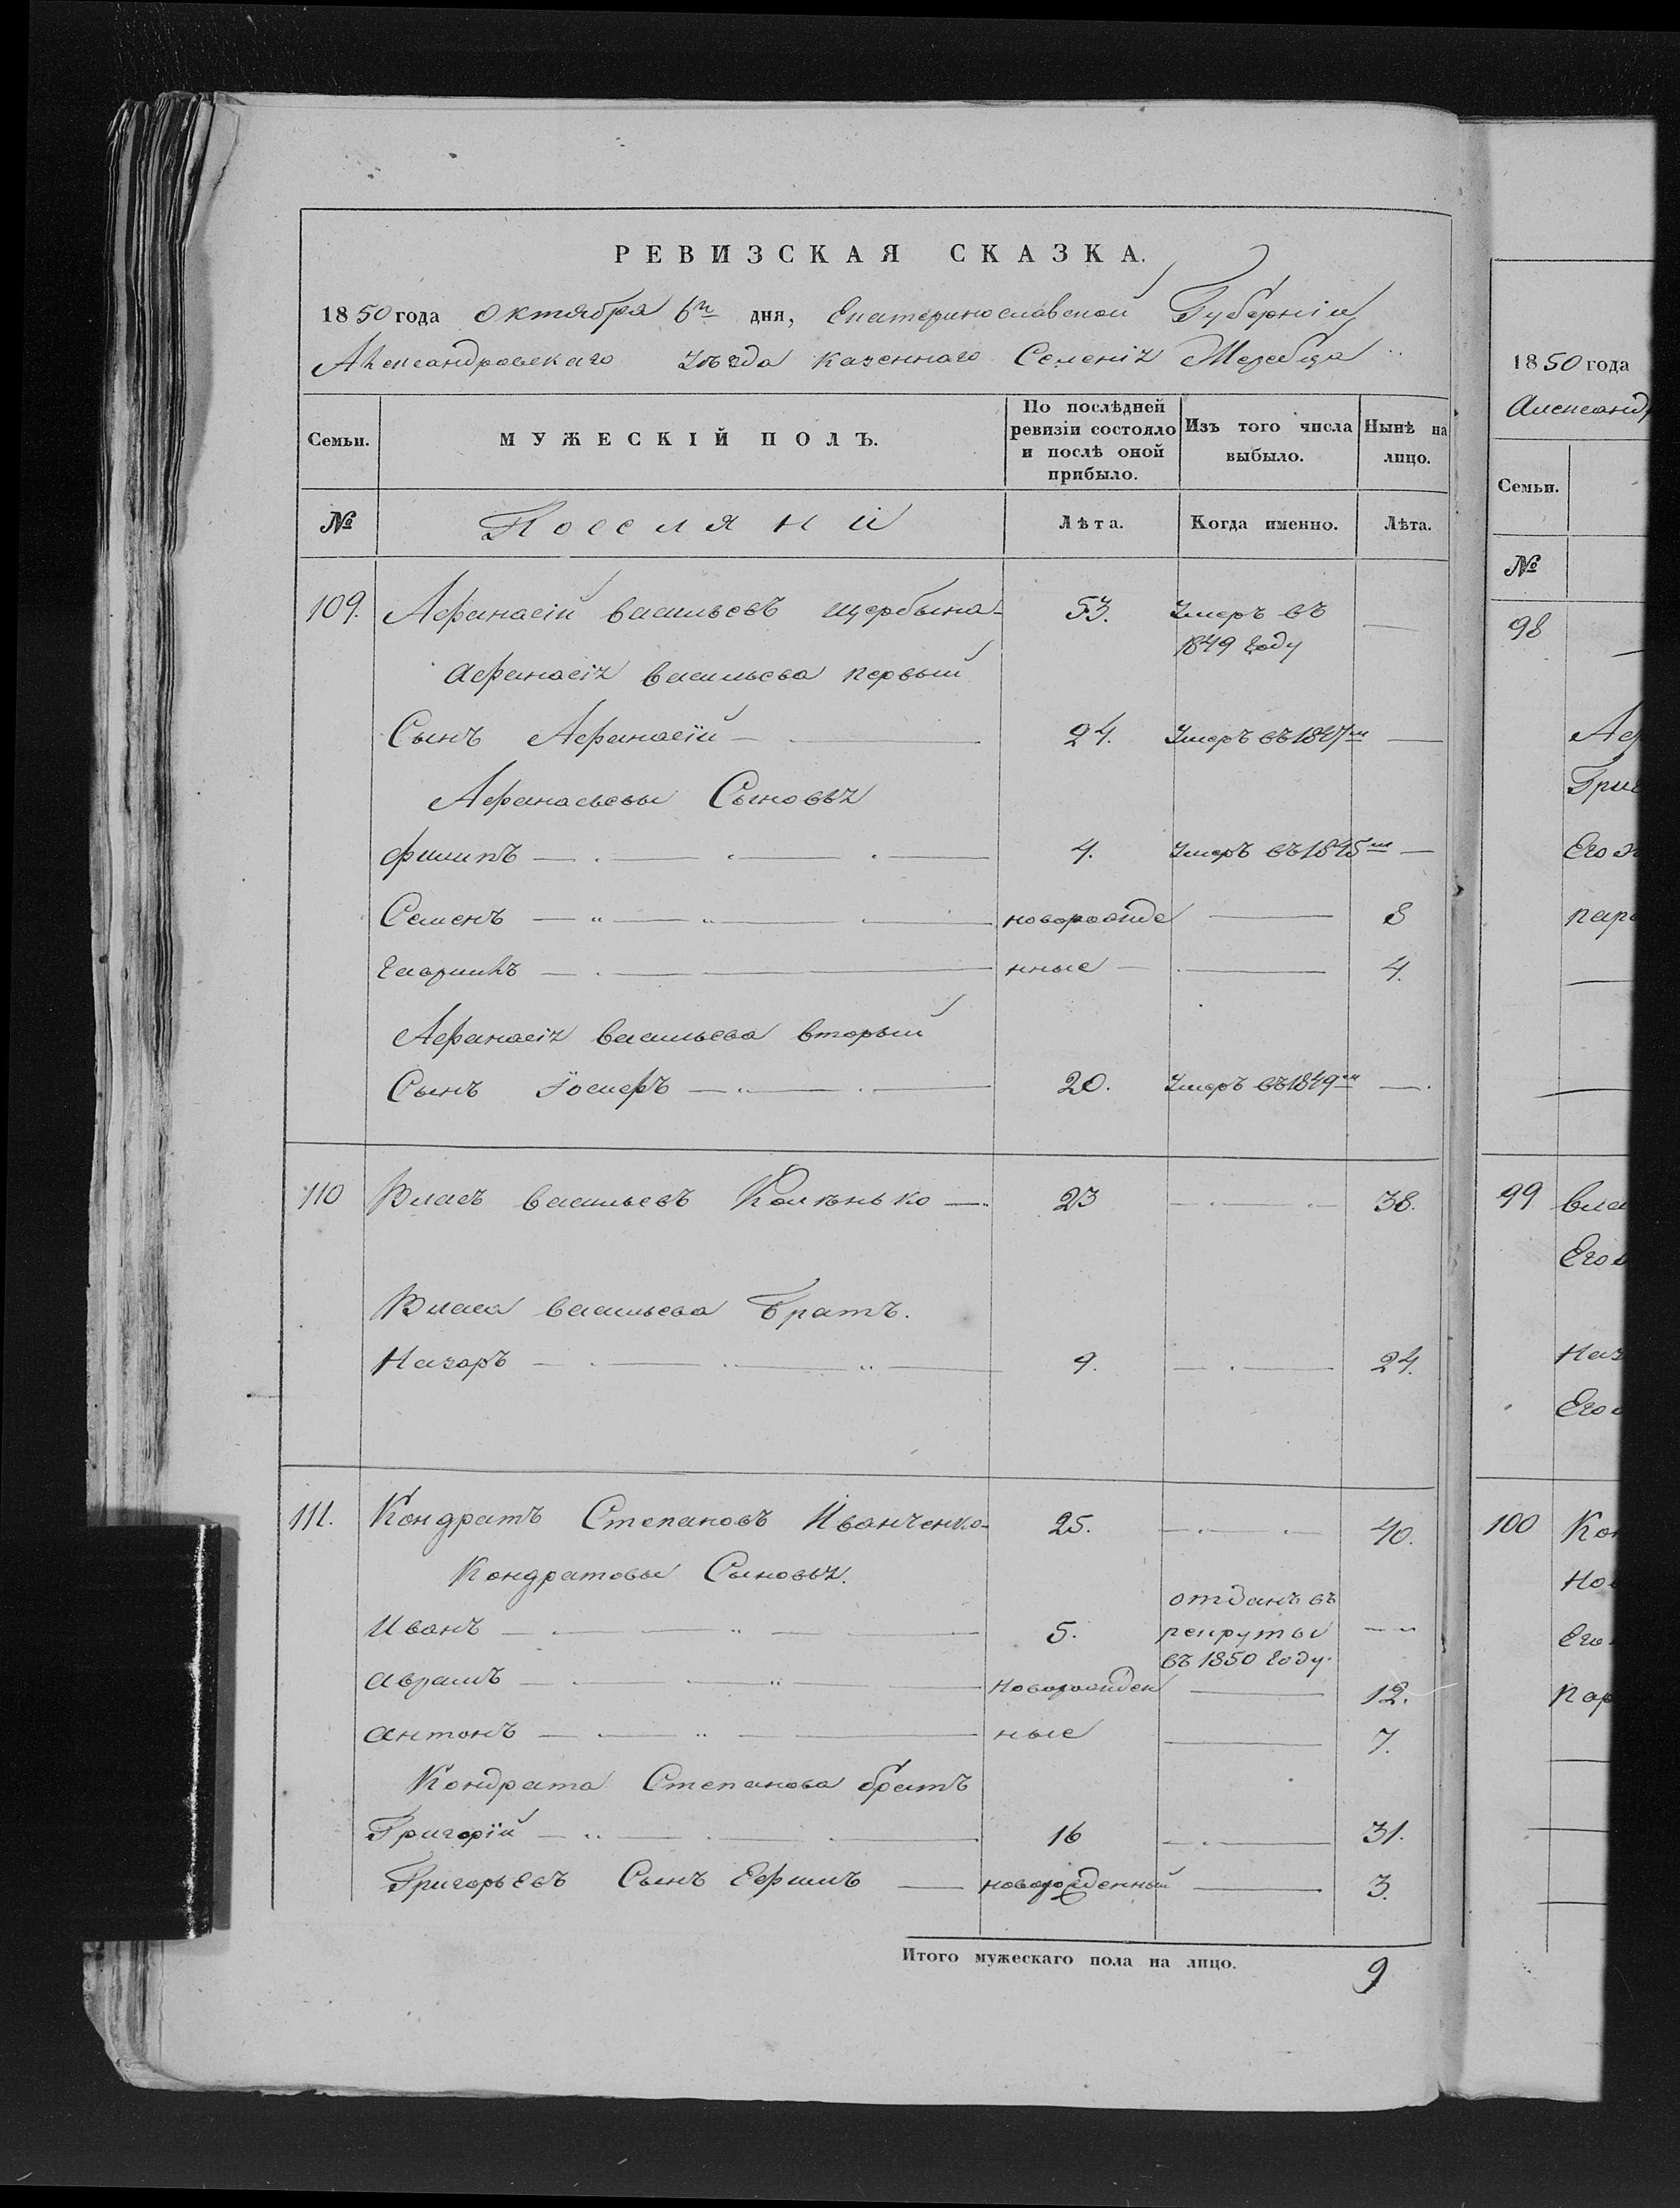 РЕВИЗСКАЯ СКАЗКА.
1850 года Октября 6го дня, Екатеринославской Губерніи
Александровскаго Уѣзда казеннаго Селенія Жеребца
Семьи. МУЖЕСКІЙ ПОЛЪ. По послѣдней ревизіи состояло и послѣ оной прибыло. Изъ того числа выбыло. Нынѣ на лицо.
№ Поселяни Лѣта. Когда именно. Лѣта.
109. Афанасій васильевъ щербына 53. Умеръ въ 1849 году —
Афанасія васильева первый
Сынъ Афанасій — 24. Умеръ въ 1847м —
Афанасьевы Сыновья
Филипъ — 4. Умеръ въ 1845м —
Семенъ — новорожде — 8
Гаврилъ — нные — 4.
Афанасія васильева вторый
Сынъ Іосифъ — 20. Умеръ въ 1849м —
110 Власъ васильевъ Колѣнько — 23 — 38.
Власа васильева Братъ.
Назаръ — 9. — 24.
111. Кондратъ Степановъ Иванченко 25. — 40.
Кондратовы Сыновья.
Иванъ — 5. отданъ въ рекруты въ 1850 году. —
Аврамъ — Новорожден — 12.
Антонъ — ные — 7.
Кондрата Степанова братъ
Григорій — 16 — 31.
Григорьевъ Сынъ Ефимъ — новорожденный — 3.
Итого мужескаго пола на лицо. 9
1850 года
Александ
Семьи.
№
98
Аф
Григ
Его
пара
99 вла
Его
Наз
Его
100 Кон
Но
Его
Пар